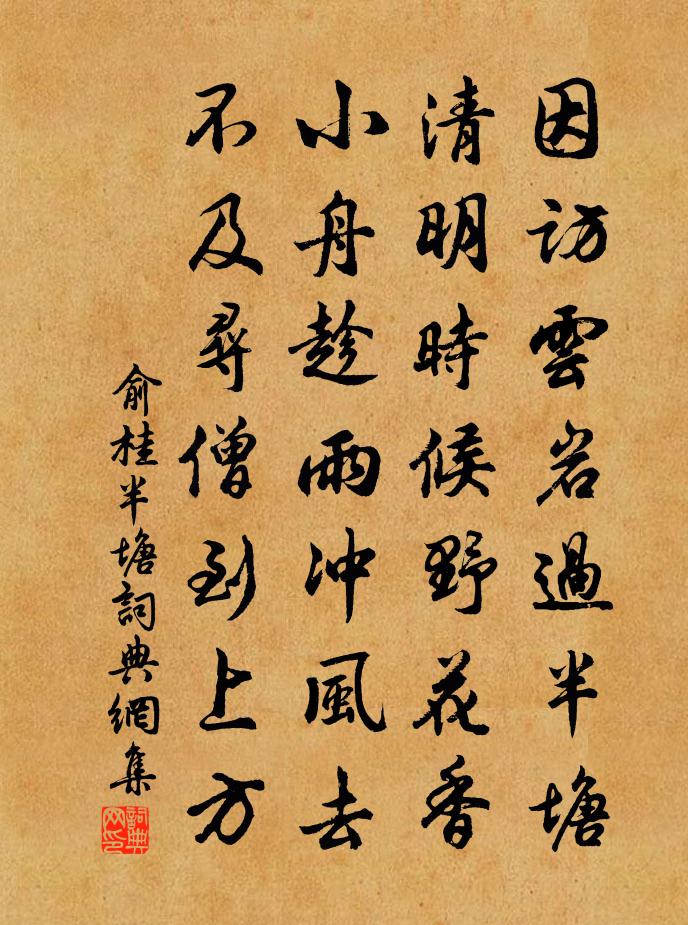 因訪雲岩過半塘
清明時候野花香
小舟趁雨冲風去
不及尋僧到上方
俞桂半塘詞典網集
詞典网印